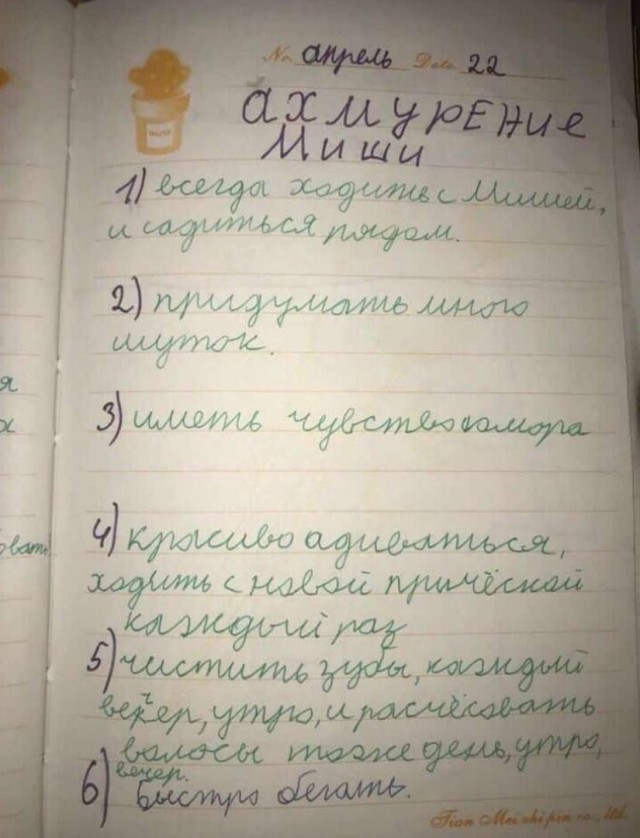 No апрель Date 22
ахмурение
Миши
1) всегда ходить с Мишей,
и садиться рядом.
2) придумать много
шуток.
я
х
3) иметь чувство юмора
4) красиво адиваться,
овать
ходить с новой причёской
каждый раз
5) чистить зубы, каждый
вечер, утро, и расчёсовать
волосы тоже день, утро,
вечер.
6) Быстро бегать.
Tian Mei zhi pin co., ltd.